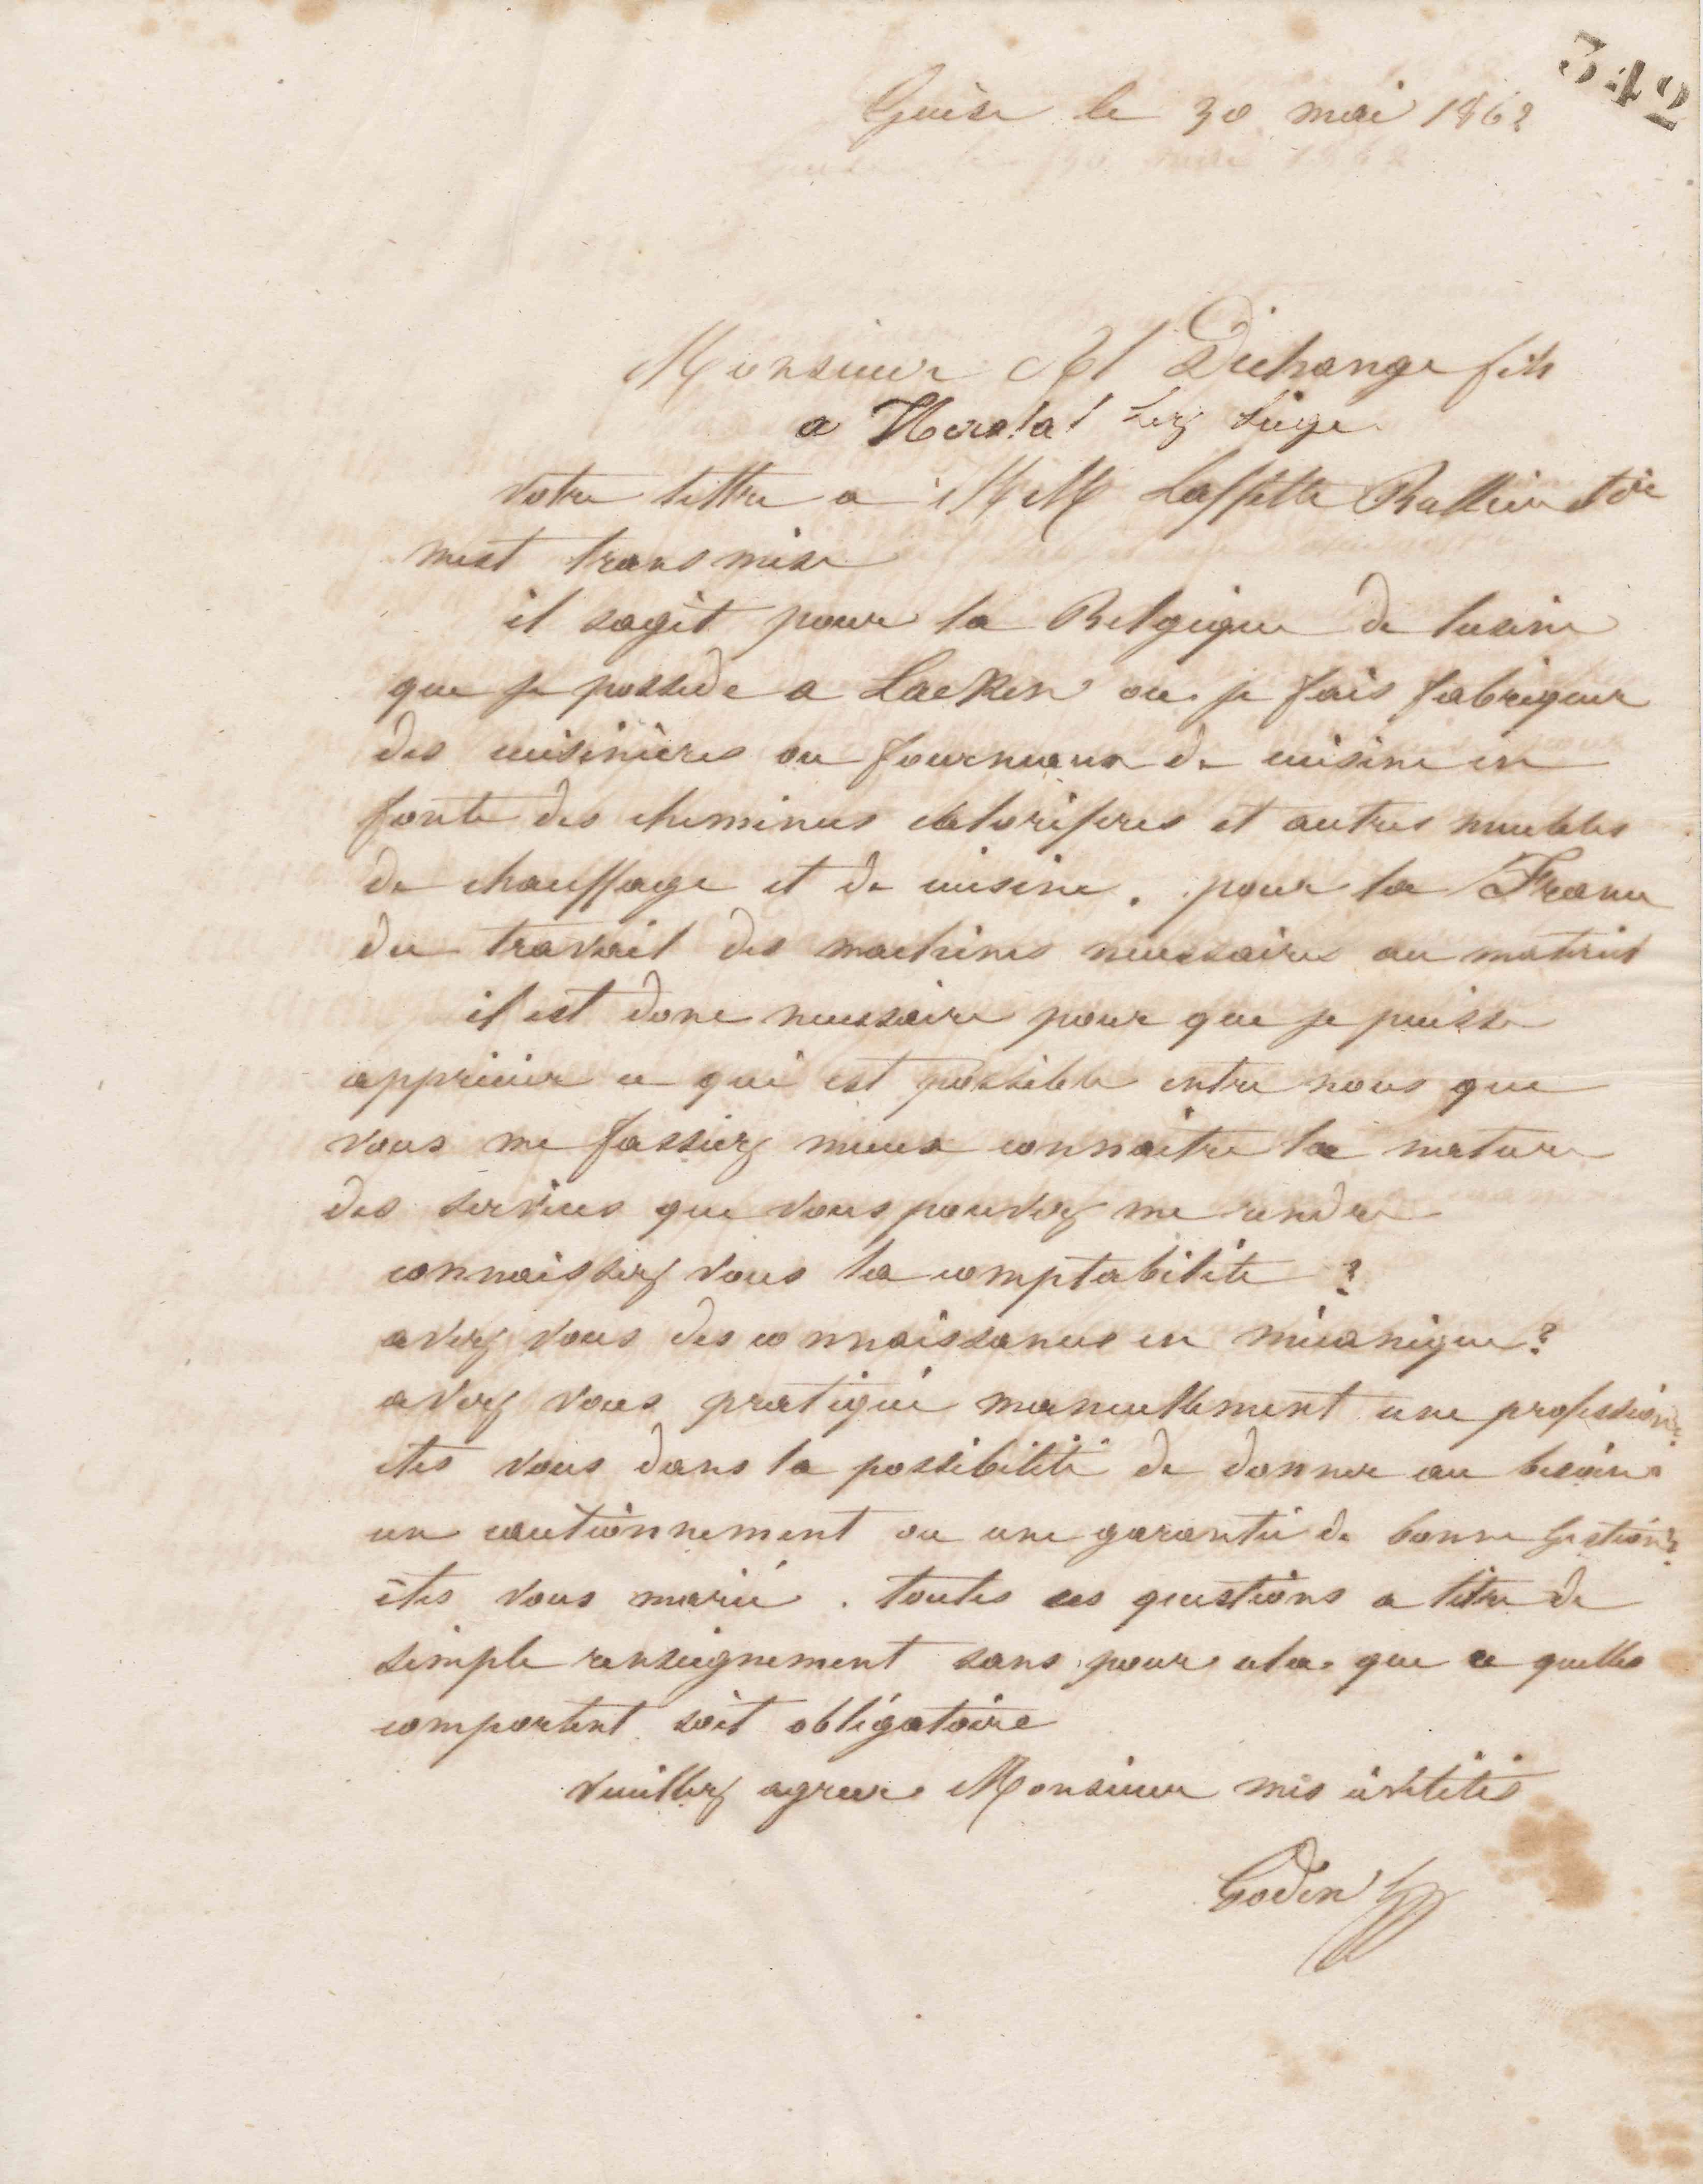 342
Guise le 30 mai 1862
Monsieur Al Dechange fils
a Herstal lez Liège
votre lettre a MM Laffitte Bullier et Cie
mest transmise
il sagit pour la Belgique de lusine
que je possede a Laeken ou je fais fabriquer
des cuisinières ou fourneaux de cuisine en
fonte des cheminees calorifères et autres meubles
de chauffage et de cuisine. pour la France
du travail des machines necessaires au materiel
il est donc necessaire pour que je puisse
apprécier ce qui est possible entre nous que
vous me fassiez mieux connaitre la nature
des services que vous pouvez me rendre
connaissez vous la comptabilité ?
avez vous des connaissances en mécanique ?
avez vous pratiqué manuellement une profession ?
etes vous dans la possibilité de donner au besoin
un cautionnement ou une garantie de bonne gestion ?
êtes vous marié . toutes ces questions a titre de
simple renseignement sans pour cela que ce quelles
comportent soit obligatoire
veuillez agreer Monsieur mes civilités
Godin